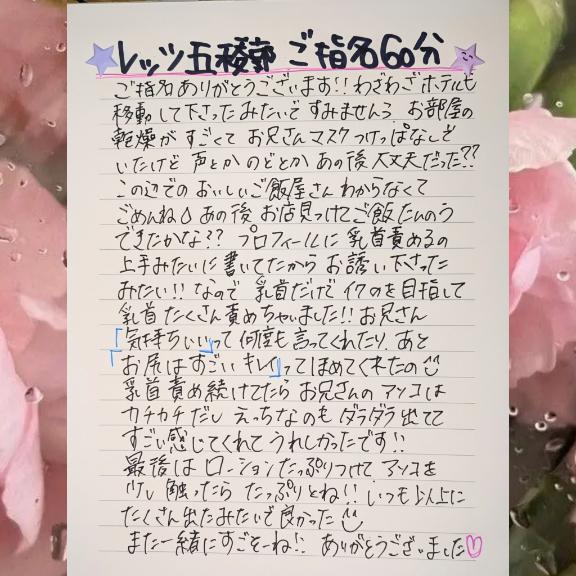 レッツ五稜郭 ご指名60分
ご指名ありがとうございます!! わざわざホテルも
移動して下さったみたいですみませんっ お部屋の
乾燥がすごくて お兄さんマスクつけっぱなしで
いたけど 声とかのどとか あの後大丈夫だった??
この辺でのおいしいご飯屋さん わからなくて
ごめんね💧 あの後 お店見つけてご飯たんのう
できたかな?? プロフィールに 乳首責めるの
上手みたいに書いてたから お誘い下さった
みたい!! なので 乳首だけでイクのを目指して
乳首たくさん責めちゃいました!! お兄さん
「気持ちいい」って何度も言ってくれたり、あと
「お尻はすごいキレイ」ってほめてくれたの☺
乳首責め続けてたら お兄さんのアソコは
カチカチだし えっちなのもダラダラ出てて
すごい感じてくれて うれしかったです!!
最後は ローションたっぷりつけて アソコを
少し触ったら たっぷりとね!! いつも以上に
たくさん出たみたいで良かった☺
また一緒にすごそーね!! ありがとうございました♡